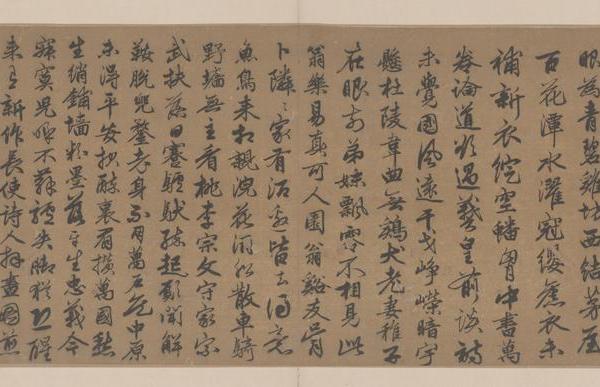 眼為青碧雞坊西結茅屋
百花潭水濯冠纓舊衣未
補新衣綻空蟠胷中書萬
卷論道欲過羲皇前談詩
未覺國風遠干戈崢嶸暗宇
懸杜陵韋曲無鷄犬老妻稚子
在眼前弟妹飄零不相見此
翁樂易真可人園翁谿友肯
卜隣〻家有酒邀皆去得意
魚鳥来相親浣花酒船散車騎
野墻無主看桃李宗文守家宗
武扶落日蹇驢馱醉起願聞解
鞍脫兜鍪老身不用萬戶侯中原
未得平安報醉裏眉攢萬國愁
生綃鋪墻粉墨落平生忠義今
寂寞兒呼不蘇驢失脚猶恐醒
来有新作長使詩人拜畫圖煎